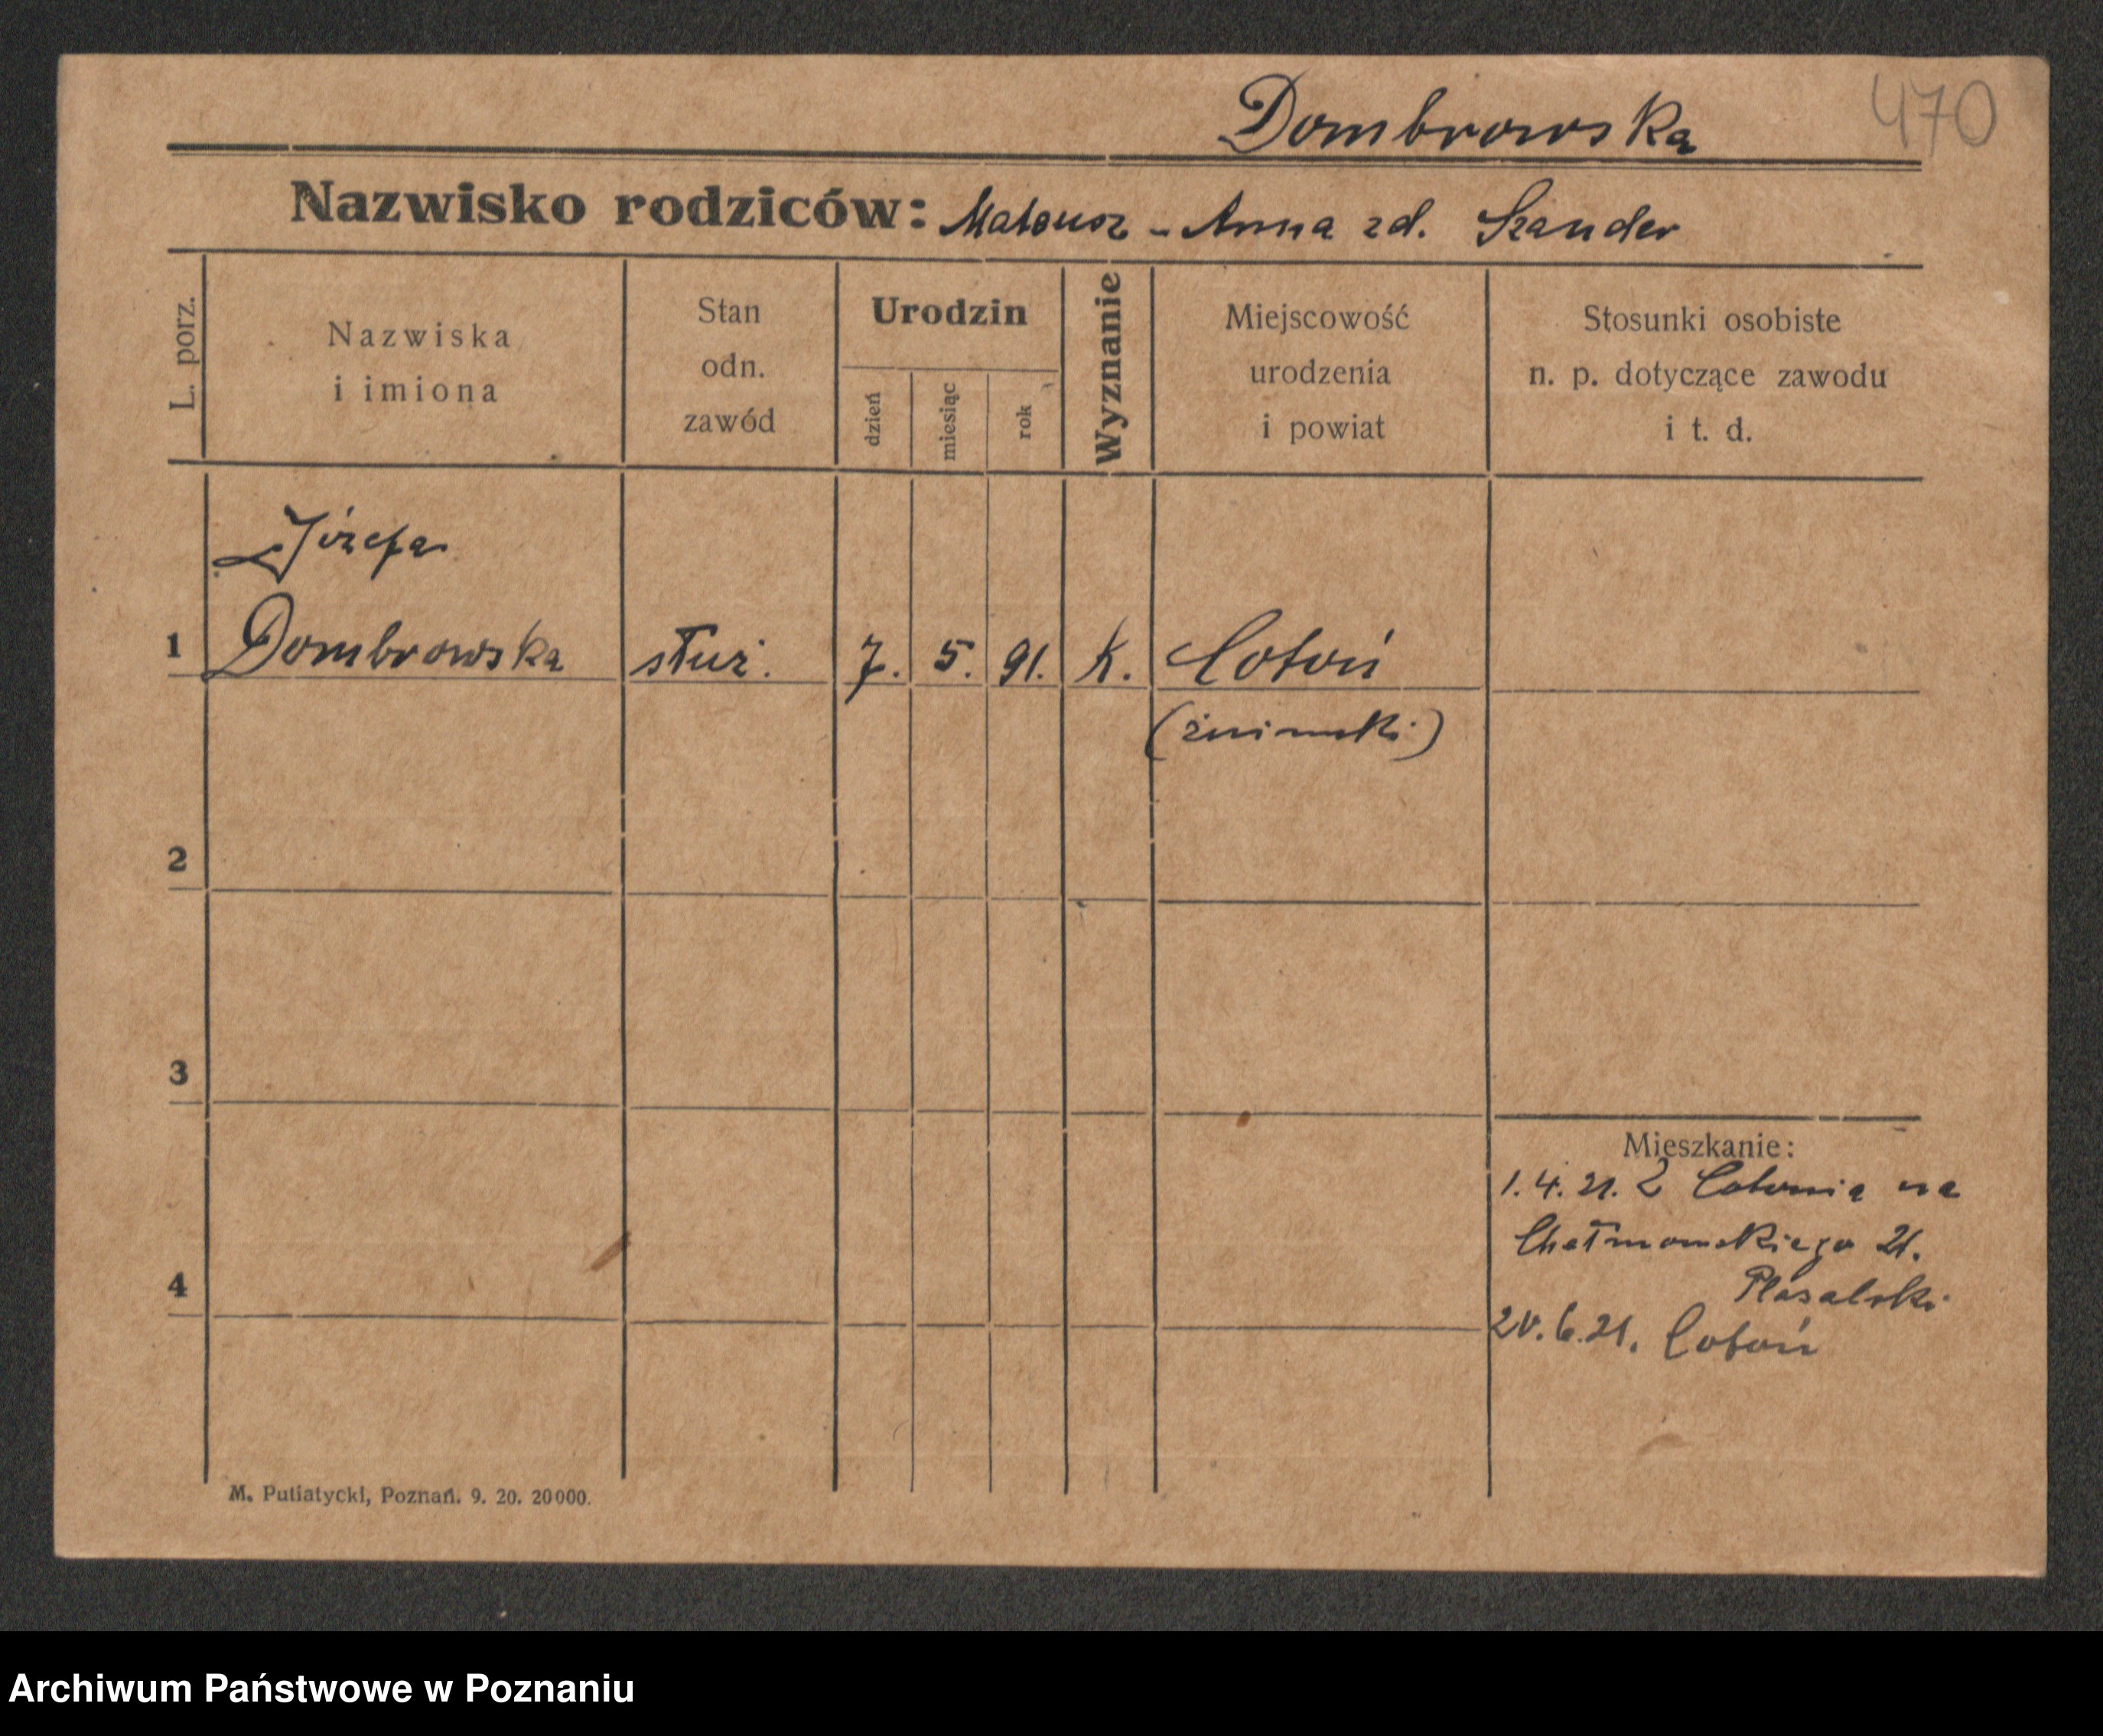 Dombrowska
470
Nazwisko rodziców: Mateusz - Anna zd. Szander
L. porz.
Nazwiska
i imiona
Stan
odn.
zawód
Urodzin
dzień
miesiąc
rok
Wyznanie
Miejscowość
urodzenia
i powiat
Stosunki osobiste
n. p. dotyczące zawodu
i t. d.
Józefa
1 Dombrowska służ. 7. 5. 91. k. Cotoń
(żniński)
2
3
4
Mieszkanie:
1.4.21. Z Cotonia na
Chełmońskiego 21.
20.6.21. Cotoń
M. Putiatycki, Poznań. 9. 20. 20000.
Archiwum Państwowe w Poznaniu